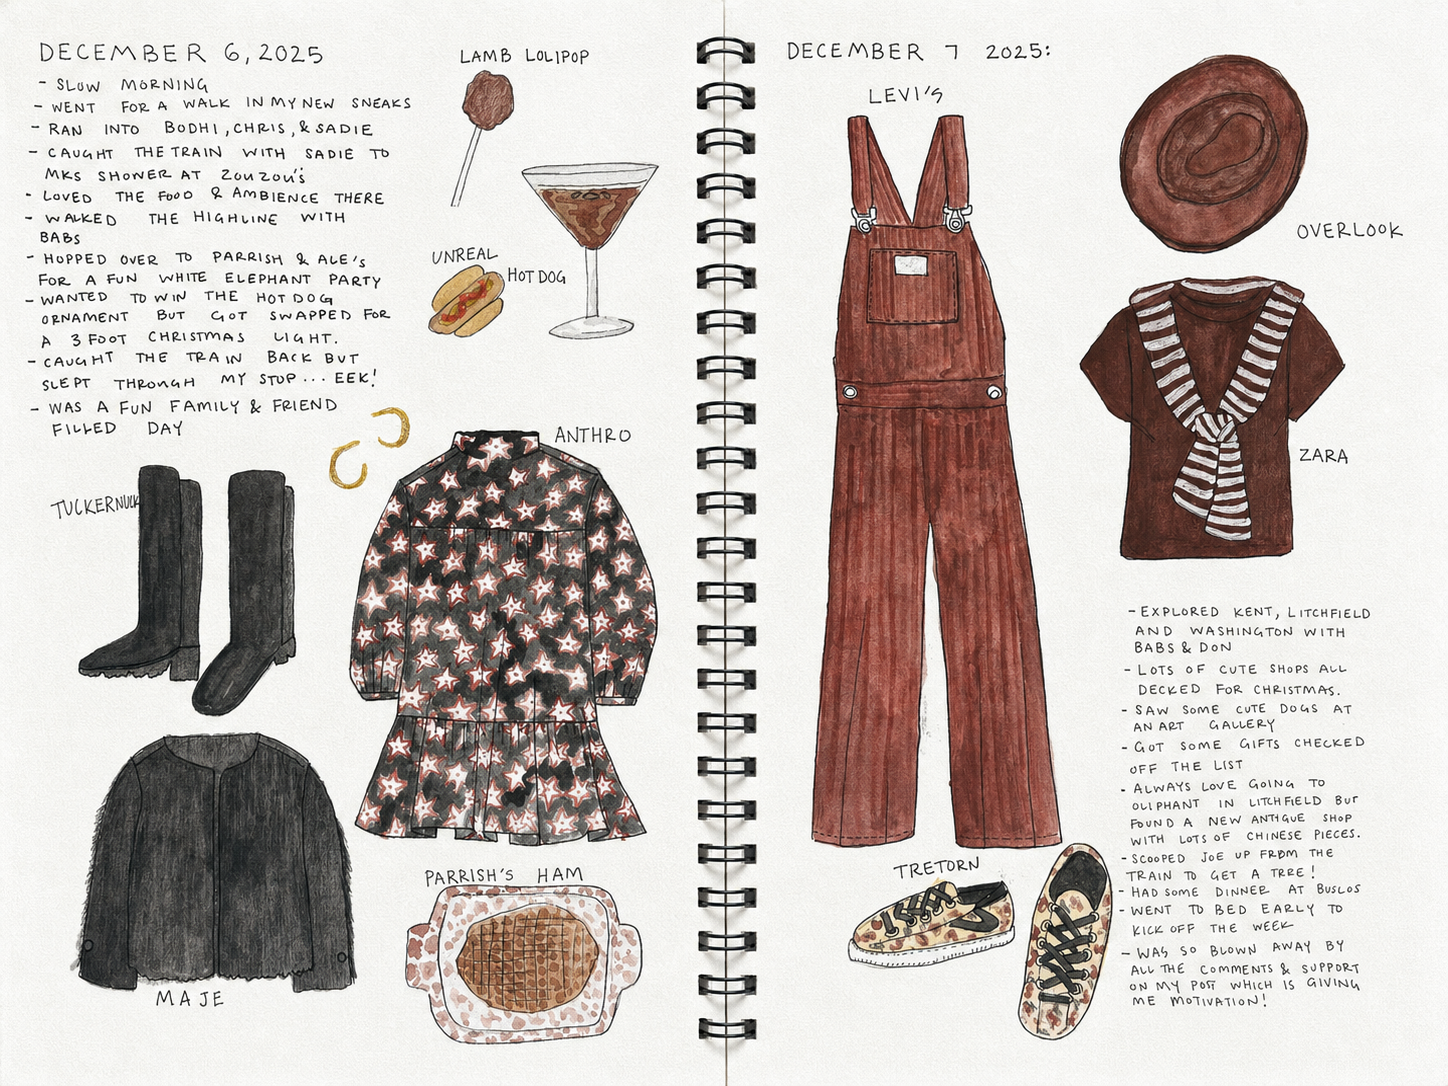 DECEMBER 6, 2025
- SLOW MORNING
- WENT FOR A WALK IN MY NEW SNEAKS
- RAN INTO BODHI, CHRIS, & SADIE
- CAUGHT THE TRAIN WITH SADIE TO
MKS SHOWER AT ZOUZOU'S
- LOVED THE FOOD & AMBIENCE THERE
- WALKED THE HIGHLINE WITH
BABS
- HOPPED OVER TO PARRISH & ALE'S
FOR A FUN WHITE ELEPHANT PARTY
- WANTED TO WIN THE HOT DOG
ORNAMENT BUT GOT SWAPPED FOR
A 3 FOOT CHRISTMAS LIGHT.
- CAUGHT THE TRAIN BACK BUT
SLEPT THROUGH MY STOP... EEK!
- WAS A FUN FAMILY & FRIEND
FILLED DAY
LAMB LOLIPOP
UNREAL
HOT DOG
TUCKERNUCK
ANTHRO
MAJE
PARRISH'S HAM
DECEMBER 7 2025:
LEVI'S
OVERLOOK
ZARA
TRETORN
- EXPLORED KENT, LITCHFIELD
AND WASHINGTON WITH
BABS & DON
- LOTS OF CUTE SHOPS ALL
DECKED FOR CHRISTMAS.
- SAW SOME CUTE DOGS AT
AN ART GALLERY
- GOT SOME GIFTS CHECKED
OFF THE LIST
- ALWAYS LOVE GOING TO
OLIPHANT IN LITCHFIELD BUT
FOUND A NEW ANTIQUE SHOP
WITH LOTS OF CHINESE PIECES.
- SCOOPED JOE UP FROM THE
TRAIN TO GET A TREE!
- HAD SOME DINNER AT BUSLOS
- WENT TO BED EARLY TO
KICK OFF THE WEEK
- WAS SO BLOWN AWAY BY
ALL THE COMMENTS & SUPPORT
ON MY POST WHICH IS GIVING
ME MOTIVATION!